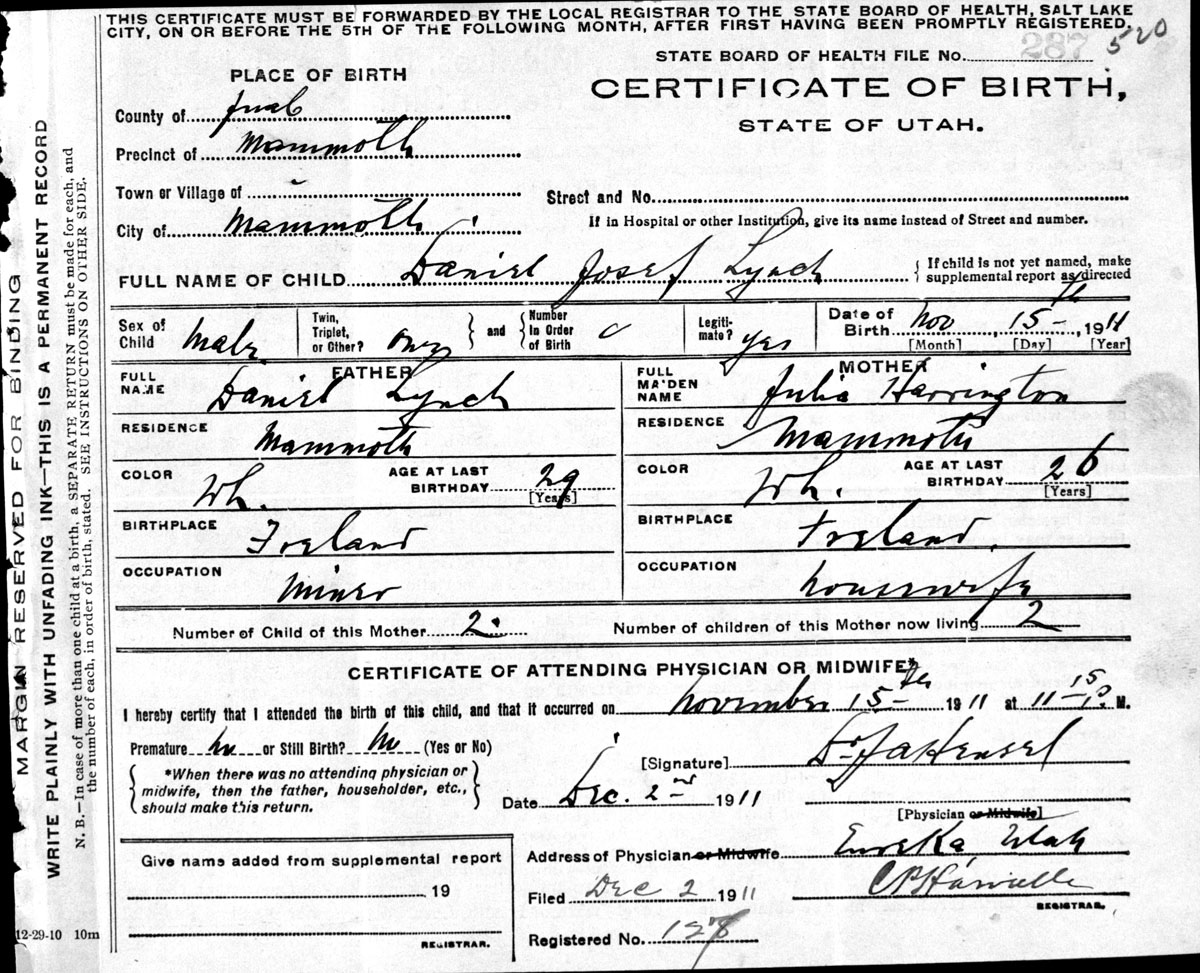 THIS CERTIFICATE MUST BE FORWARDED BY THE LOCAL REGISTRAR TO THE STATE BOARD OF HEALTH, SALT LAKE
CITY, ON OR BEFORE THE 5TH OF THE FOLLOWING MONTH, AFTER FIRST HAVING BEEN PROMPTLY REGISTERED.
520
STATE BOARD OF HEALTH FILE No. 287
CERTIFICATE OF BIRTH,
STATE OF UTAH.
PLACE OF BIRTH
County of Juab
Precinct of Mammoth
Town or Village of
Street and No.
City of Mammoth
If in Hospital or other Institution, give its name instead of Street and number.
FULL NAME OF CHILD Daniel Josef Lynch
If child is not yet named, make
supplemental report as directed
Sex of Child Male
Twin, Triplet, or Other? and Number In Order of Birth
Legiti-mate? yes
Date of Birth Nov 15th 1911
[Month] [Day] [Year]
FATHER
FULL NAME Daniel Lynch
RESIDENCE Mammoth
COLOR Wh. AGE AT LAST BIRTHDAY 29 [Years]
BIRTHPLACE Ireland
OCCUPATION Miner
MOTHER
FULL MAIDEN NAME Julia Harrington
RESIDENCE Mammoth
COLOR Wh. AGE AT LAST BIRTHDAY 26 [Years]
BIRTHPLACE Ireland.
OCCUPATION housewife
Number of Child of this Mother 2. Number of children of this Mother now living 2
CERTIFICATE OF ATTENDING PHYSICIAN OR MIDWIFE*
I hereby certify that I attended the birth of this child, and that it occurred on November 15th 1911 at 11-15 P. M.
Premature no or Still Birth? no (Yes or No)
*When there was no attending physician or
midwife, then the father, householder, etc.,
should make this return.
[Signature] Dr J A Hensel
Date Dec. 2nd 1911
[Physician or Midwife]
Address of Physician or Midwife Eureka Utah
Filed Dec 2 1911
REGISTRAR.
Registered No. 128
Give name added from supplemental report
19
REGISTRAR.
12-29-10 10m
MARGIN RESERVED FOR BINDING
WRITE PLAINLY WITH UNFADING INK—THIS IS A PERMANENT RECORD
N. B.—In case of more than one child at a birth, a SEPARATE RETURN must be made for each, and
the number of each, in order of birth, stated. SEE INSTRUCTIONS ON OTHER SIDE.